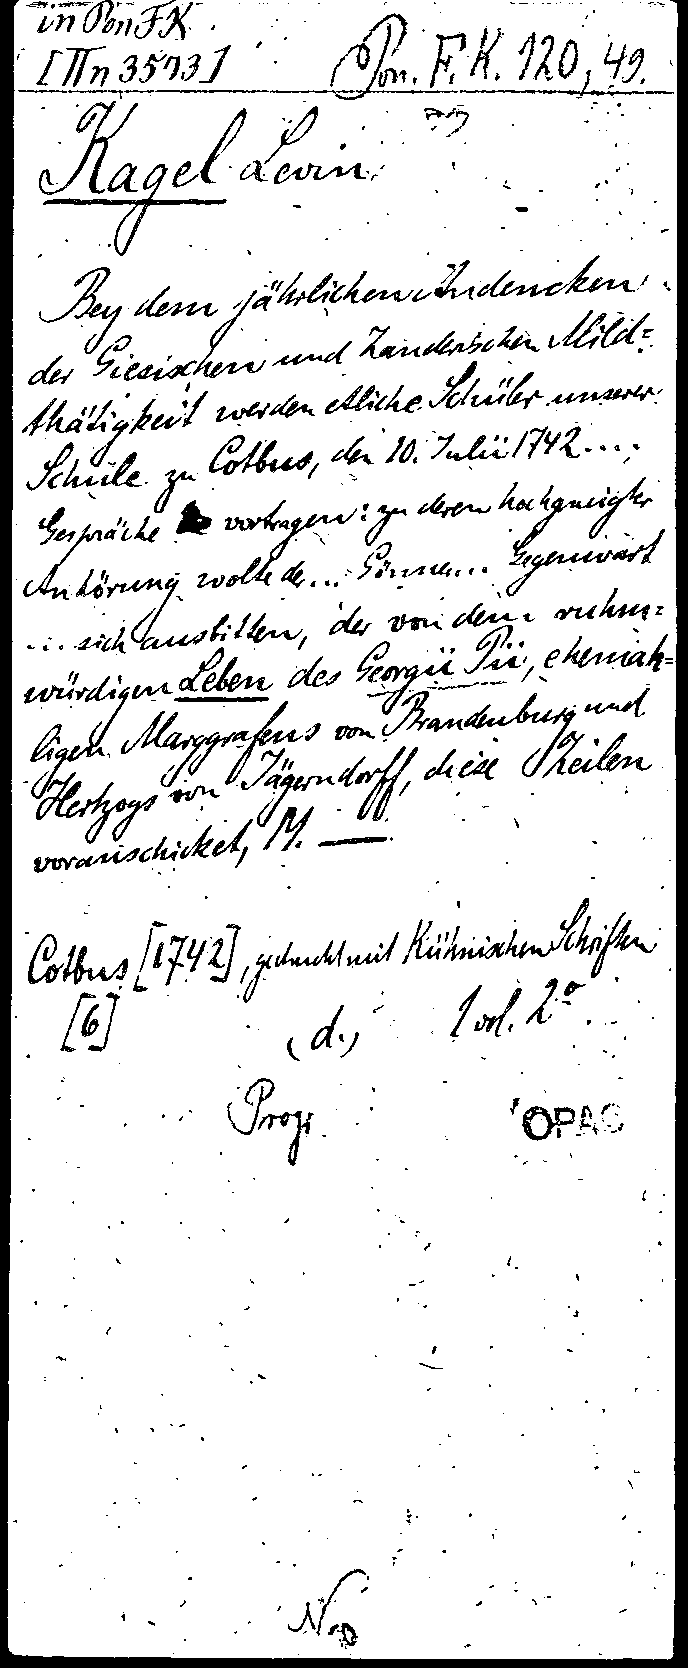 in Pon FK
[IIn 3573] Pon. F. K. 120, 49.
Kagel Levin
Bey dem jährlichen Andencken
der Giesischen und Zanderischen Mild=
thätigkeit werden etliche Schüler unserer
Schule zu Cotbus, den 10. Julii 1742 ....
Gespräche vortragen: zu deren hochgneigter
Anhörung wolte der... Gönner... Gegenwart
... sich ausbitten, der von dem ruhm=
würdigen Leben des Georgii Pii, ehemah=
ligen Marggrafens von Brandenburg und
Hertzogs von Jägerndorff, diese Zeilen
vorausschicket, M. —
Cotbus [1742], gedruckt mit Kühnischen Schriften
[6] (d.) 1 vol. 2°.
Progr.
OPAC